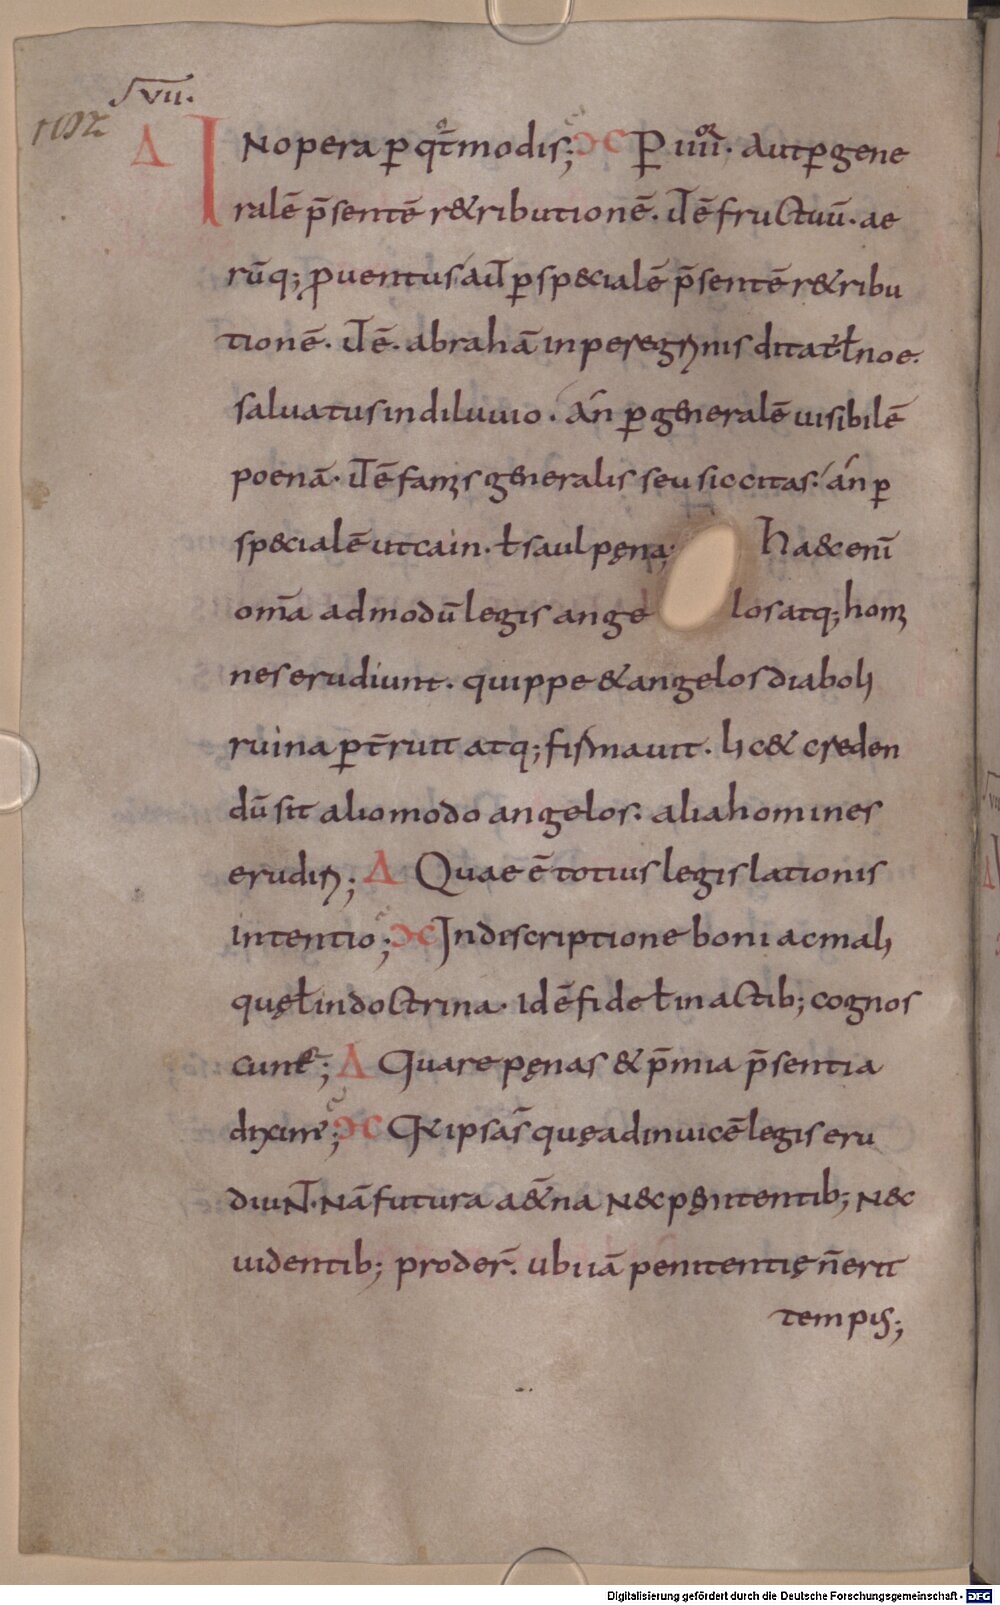 SVII.
Δ INopera ꝑ qͦt modis; ƆC Ꝑ iiii·or Autꝑgene
ralē p̄sentē r&ributionē. iꞇ̄ē fructuū. ae
rūq; ꝓuentus auꞇ̄ ꝑsp&ialē p̄sentē r&ribu
tionē. iꞇ̄ē. abrahā inperegrinis ditat· ł noe.
saluatus indiluuio. Án ꝑ generalē uisibilē
poenā. iꞇ̄ē famis generalis seu siccitas. án ꝑ
sp&ialē utcain. ł saul pęna; Ha&enī
om̄a admodū legis ange losatq; homi
neserudiunt. quippe &angelos diaboli
ruina ꝑt̄ruit atq; firmauit. Lic& creden
dū sit aliomodo angelos: alia homines
erudiri; Δ Quae ē totius legislationis
intentio; ƆC Indescriptione boni acmali
quę ł indoctrina. Idē fide ł inactib; cognos
cunt͛; Δ Quare pęnas & p̄mia p̄sentia
diximꝰ; ƆC Qr ipsas̄ quę adinuicē legis eru
diuNꞇ̄. Nā futura a&̄na N&pęnitentib; N&
uidentib; proder̄. ubi iā penitentię n̄erit
tempus;
Digitalisierung gefördert durch die Deutsche Forschungsgemeinschaft - DFG